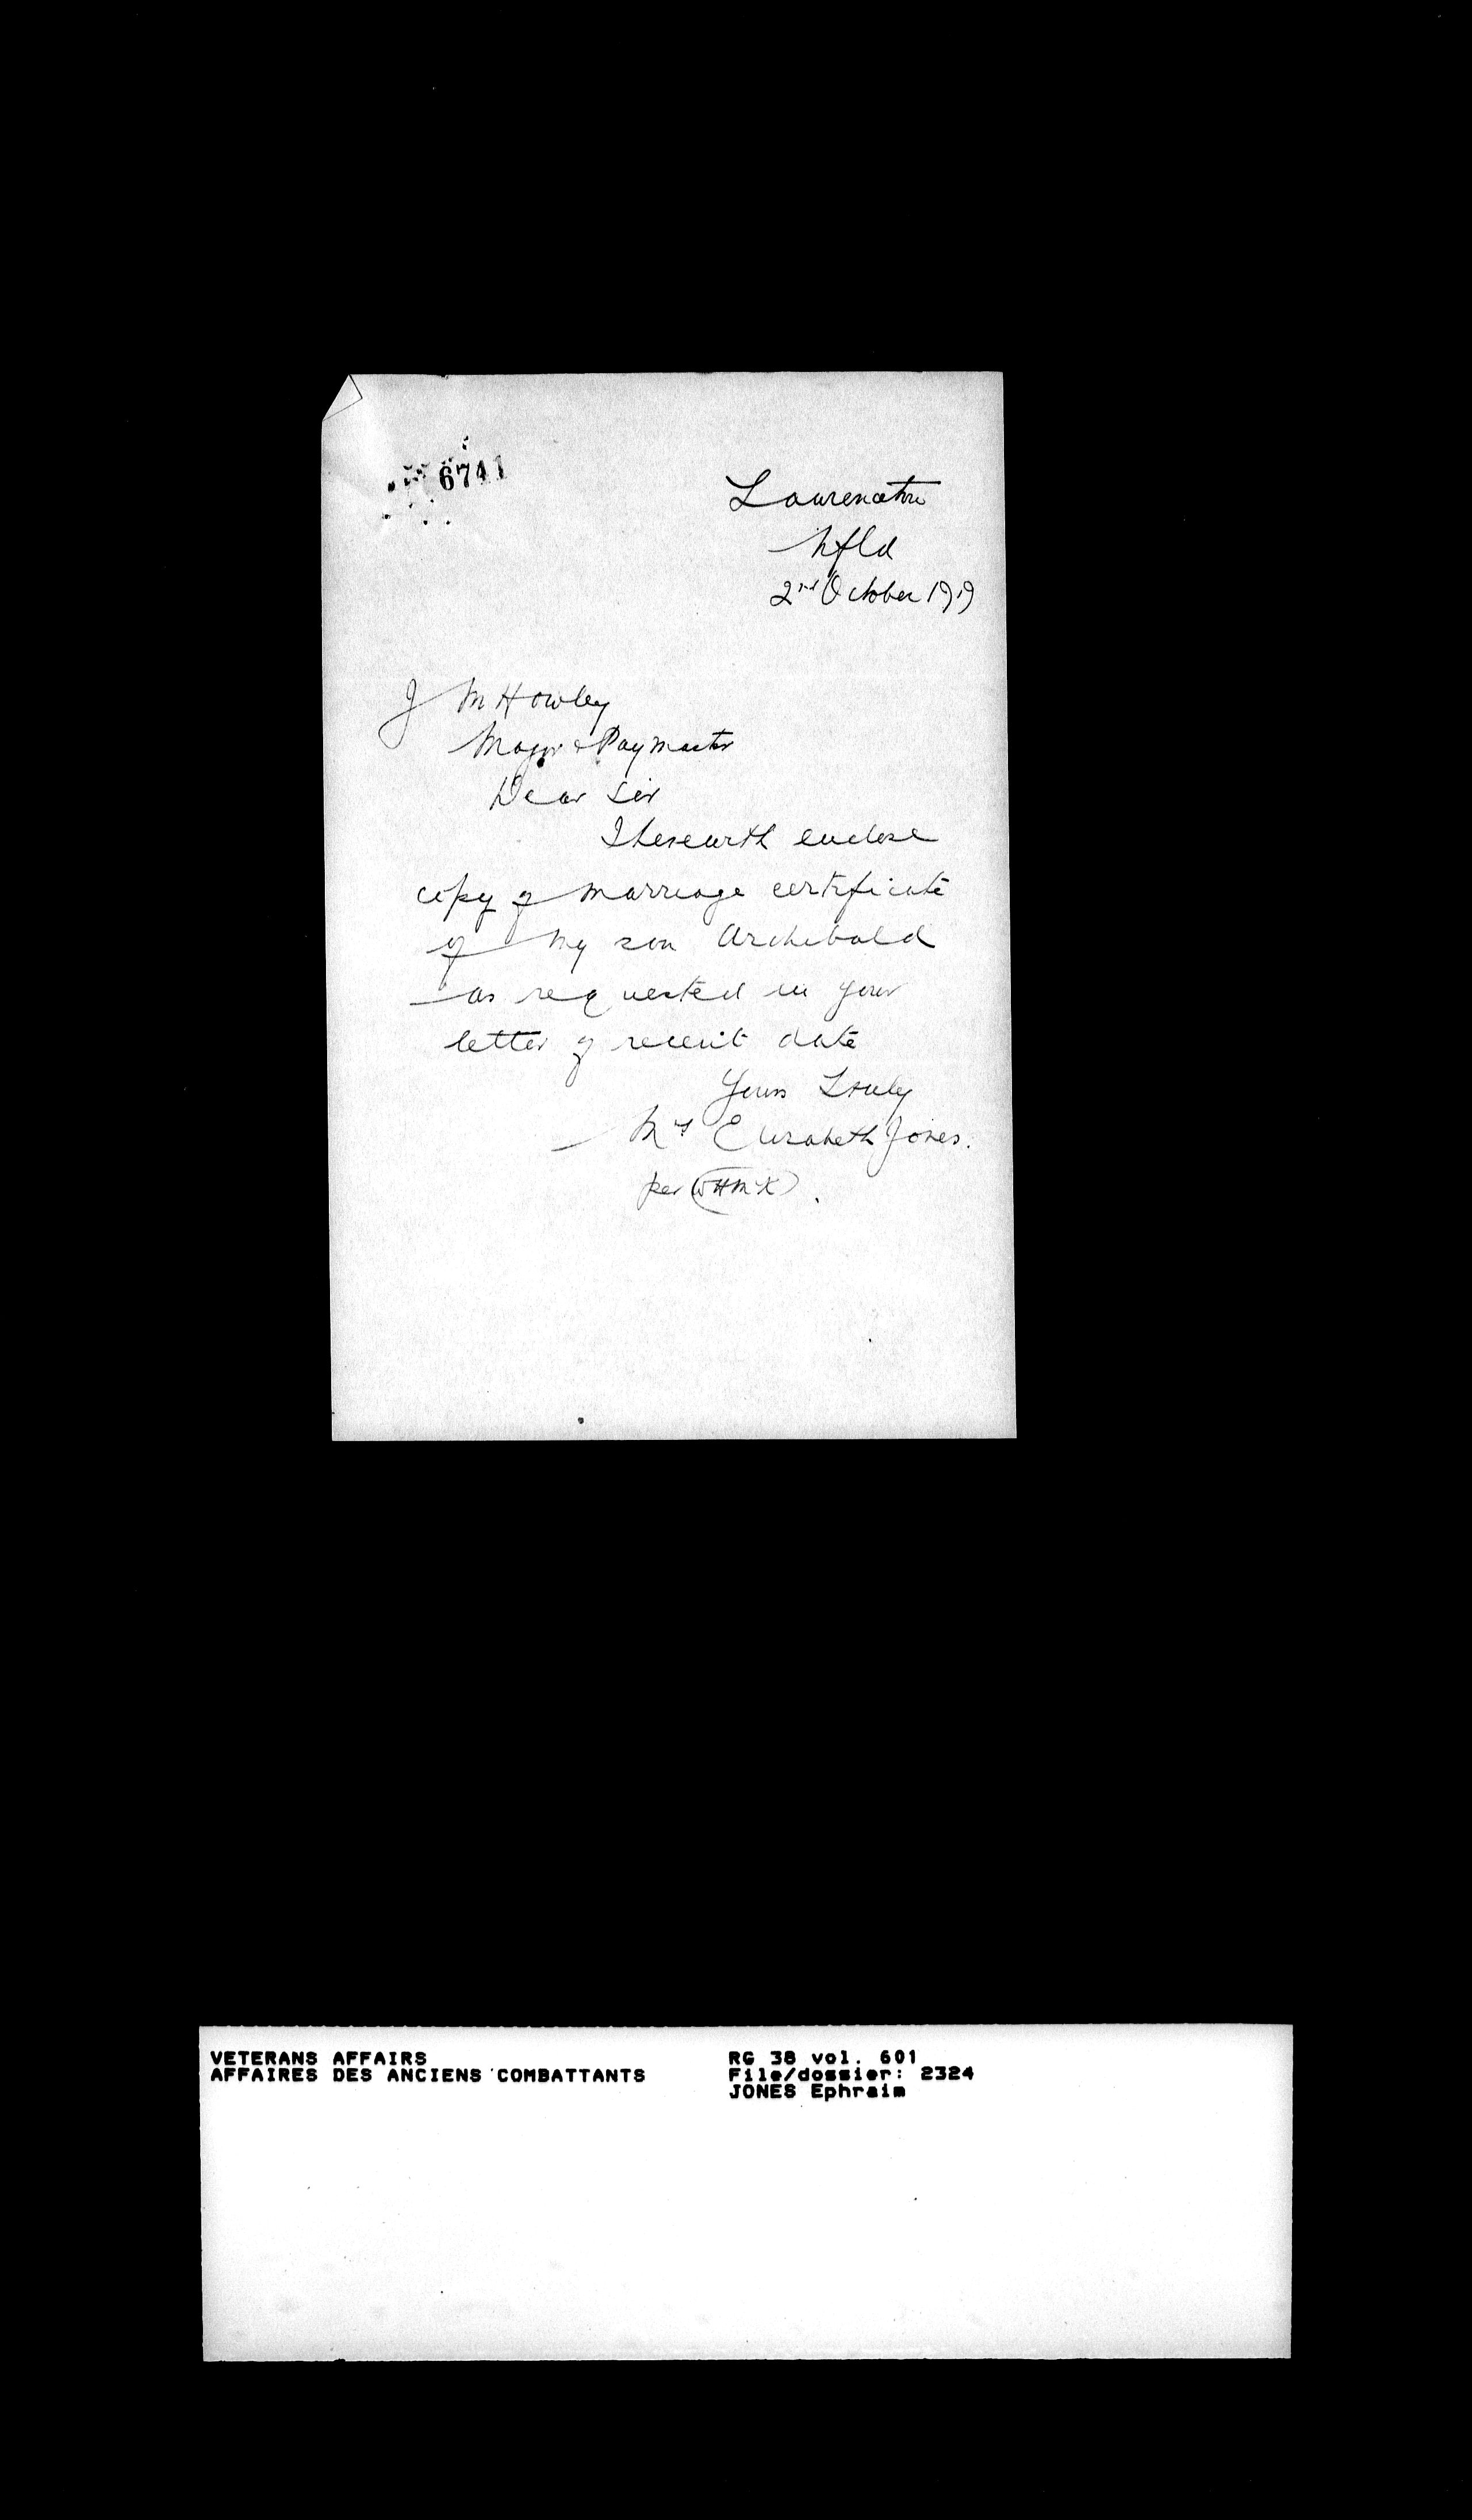 6741
Laurenceton
Nfld
2nd October 1919
J M Howley
Major & Paymaster
Dear Sir
I herewith enclose
copy of marriage certificate
of my son Archibald
as requested in your
letter of recent date
Yours Truly
Mrs Elizabeth Jones.
per WHMcK
VETERANS AFFAIRS
AFFAIRES DES ANCIENS COMBATTANTS
RG 38 vol. 601
File/dossier: 2324
JONES Ephraim